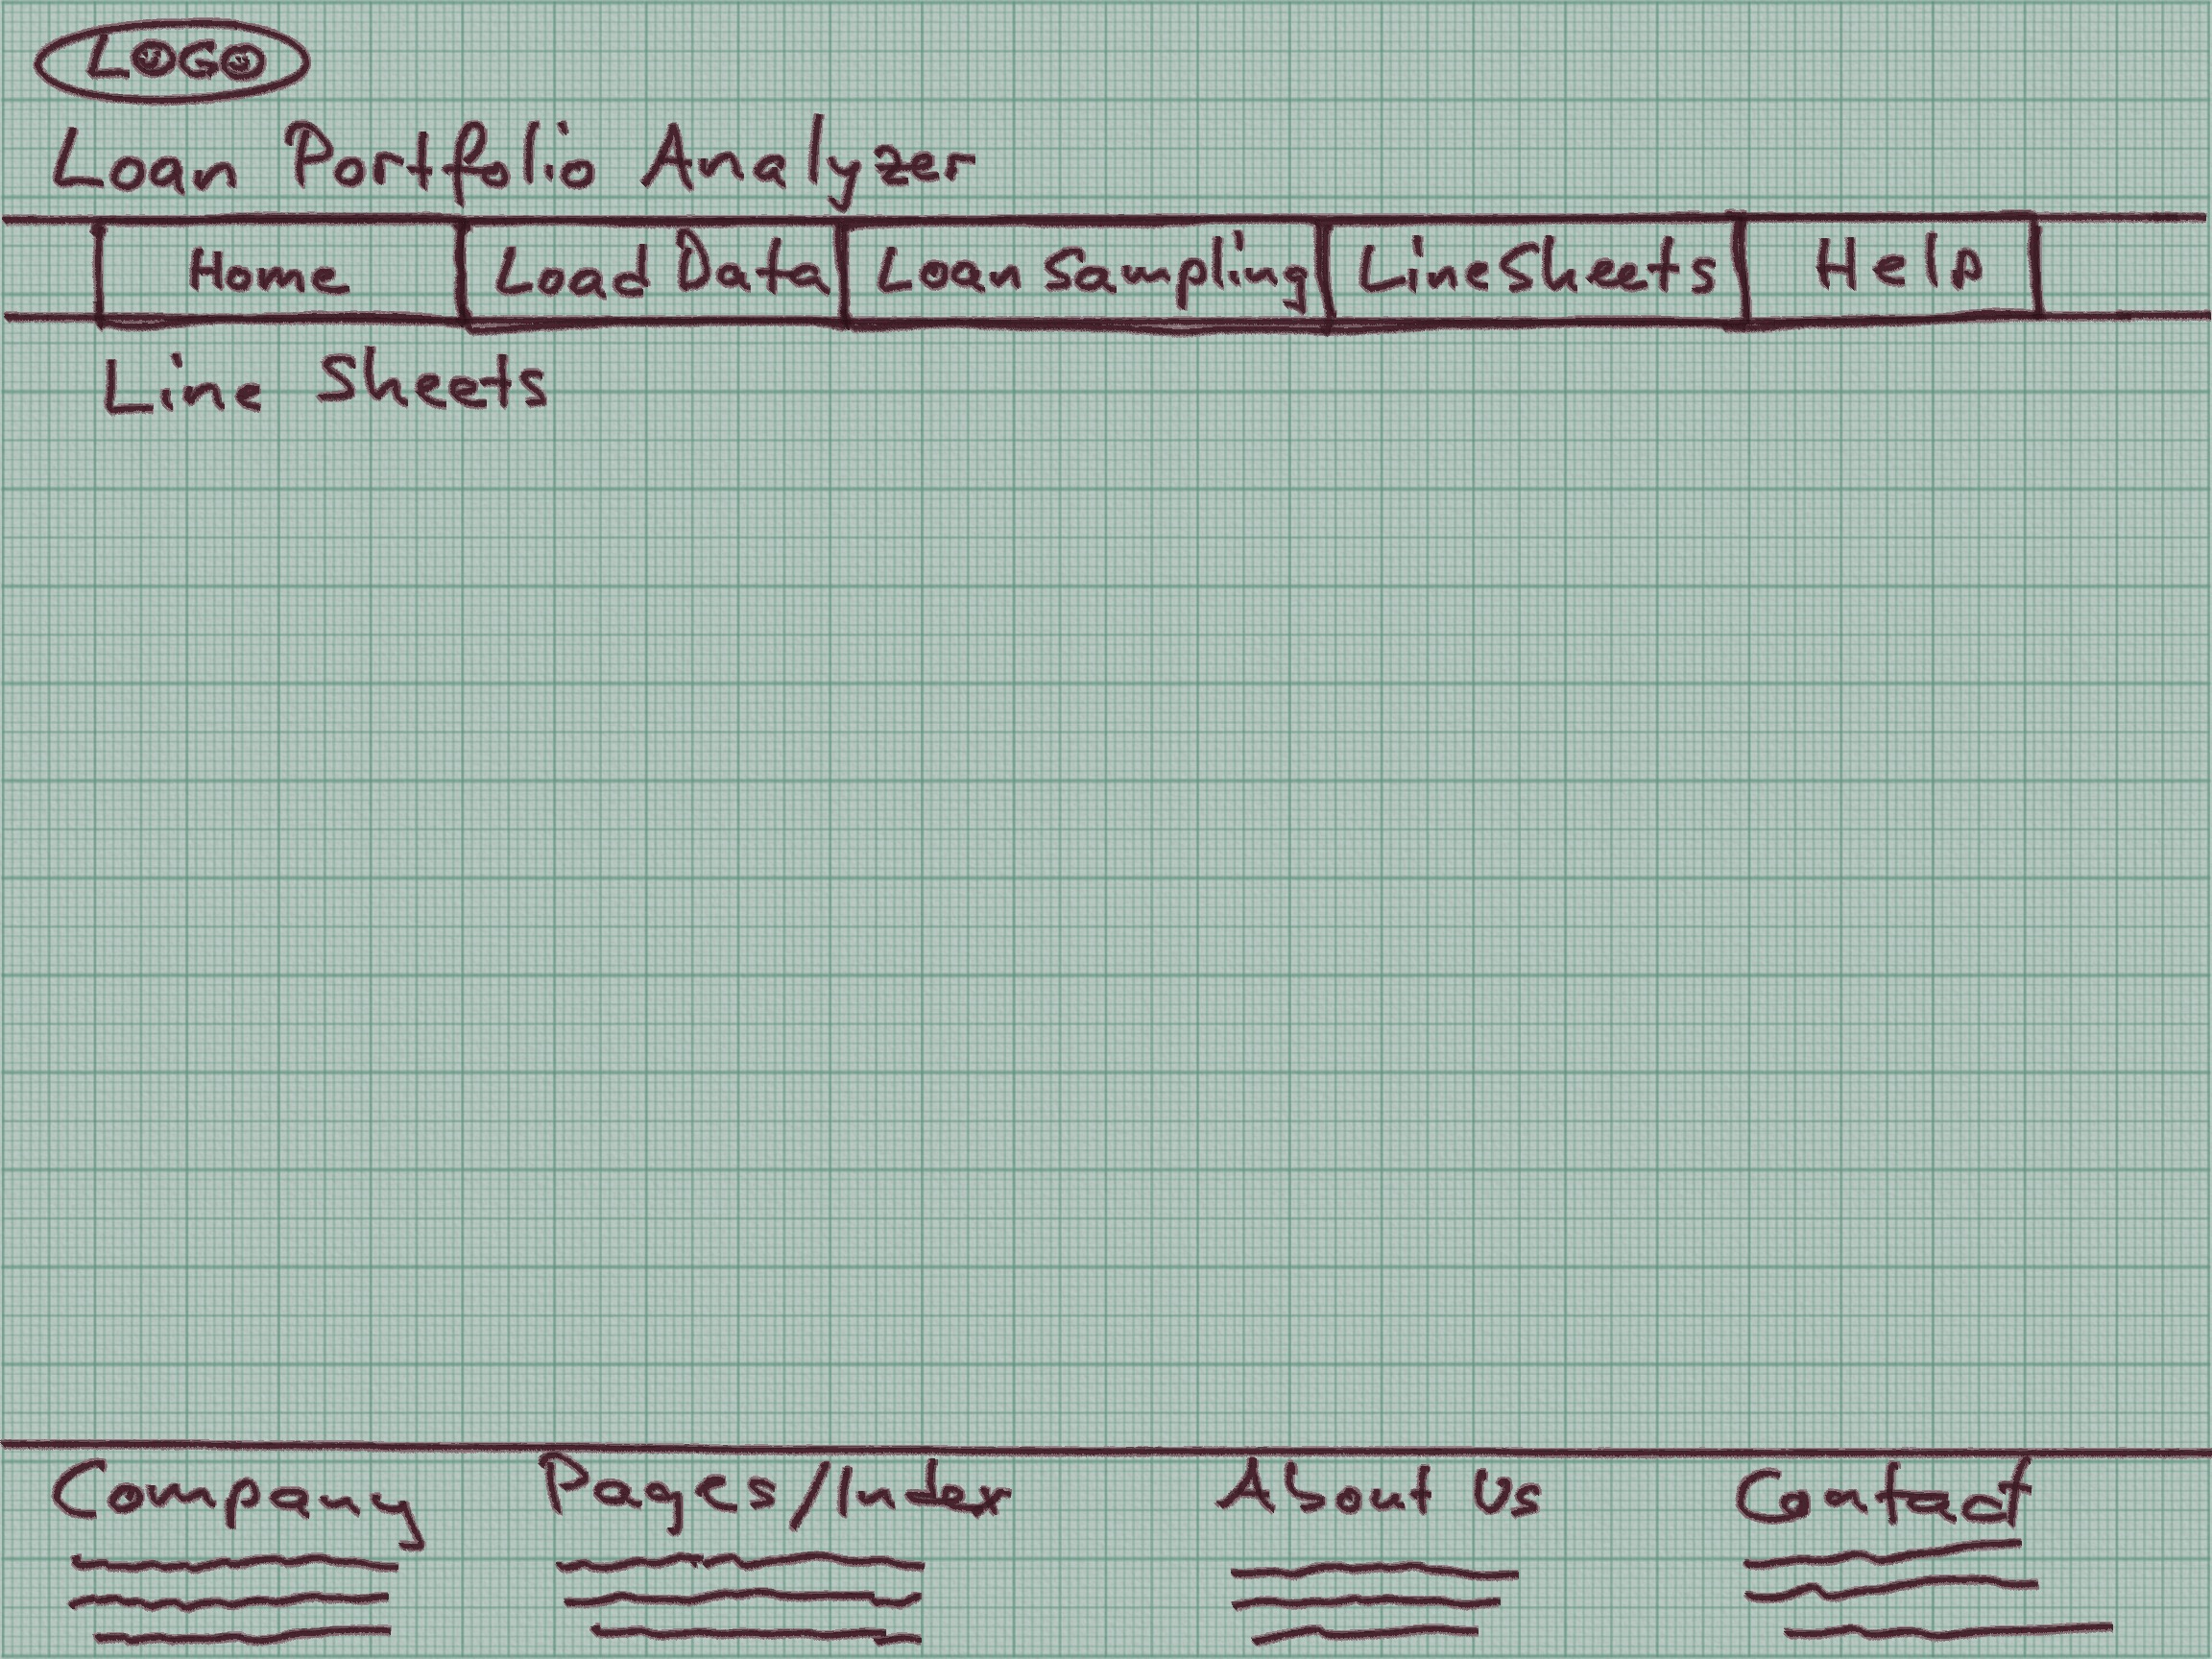 LOGO
Loan Portfolio Analyzer
Home Load Data Loan Sampling Line Sheets Help
Line Sheets
Company Pages/Index About Us Contact